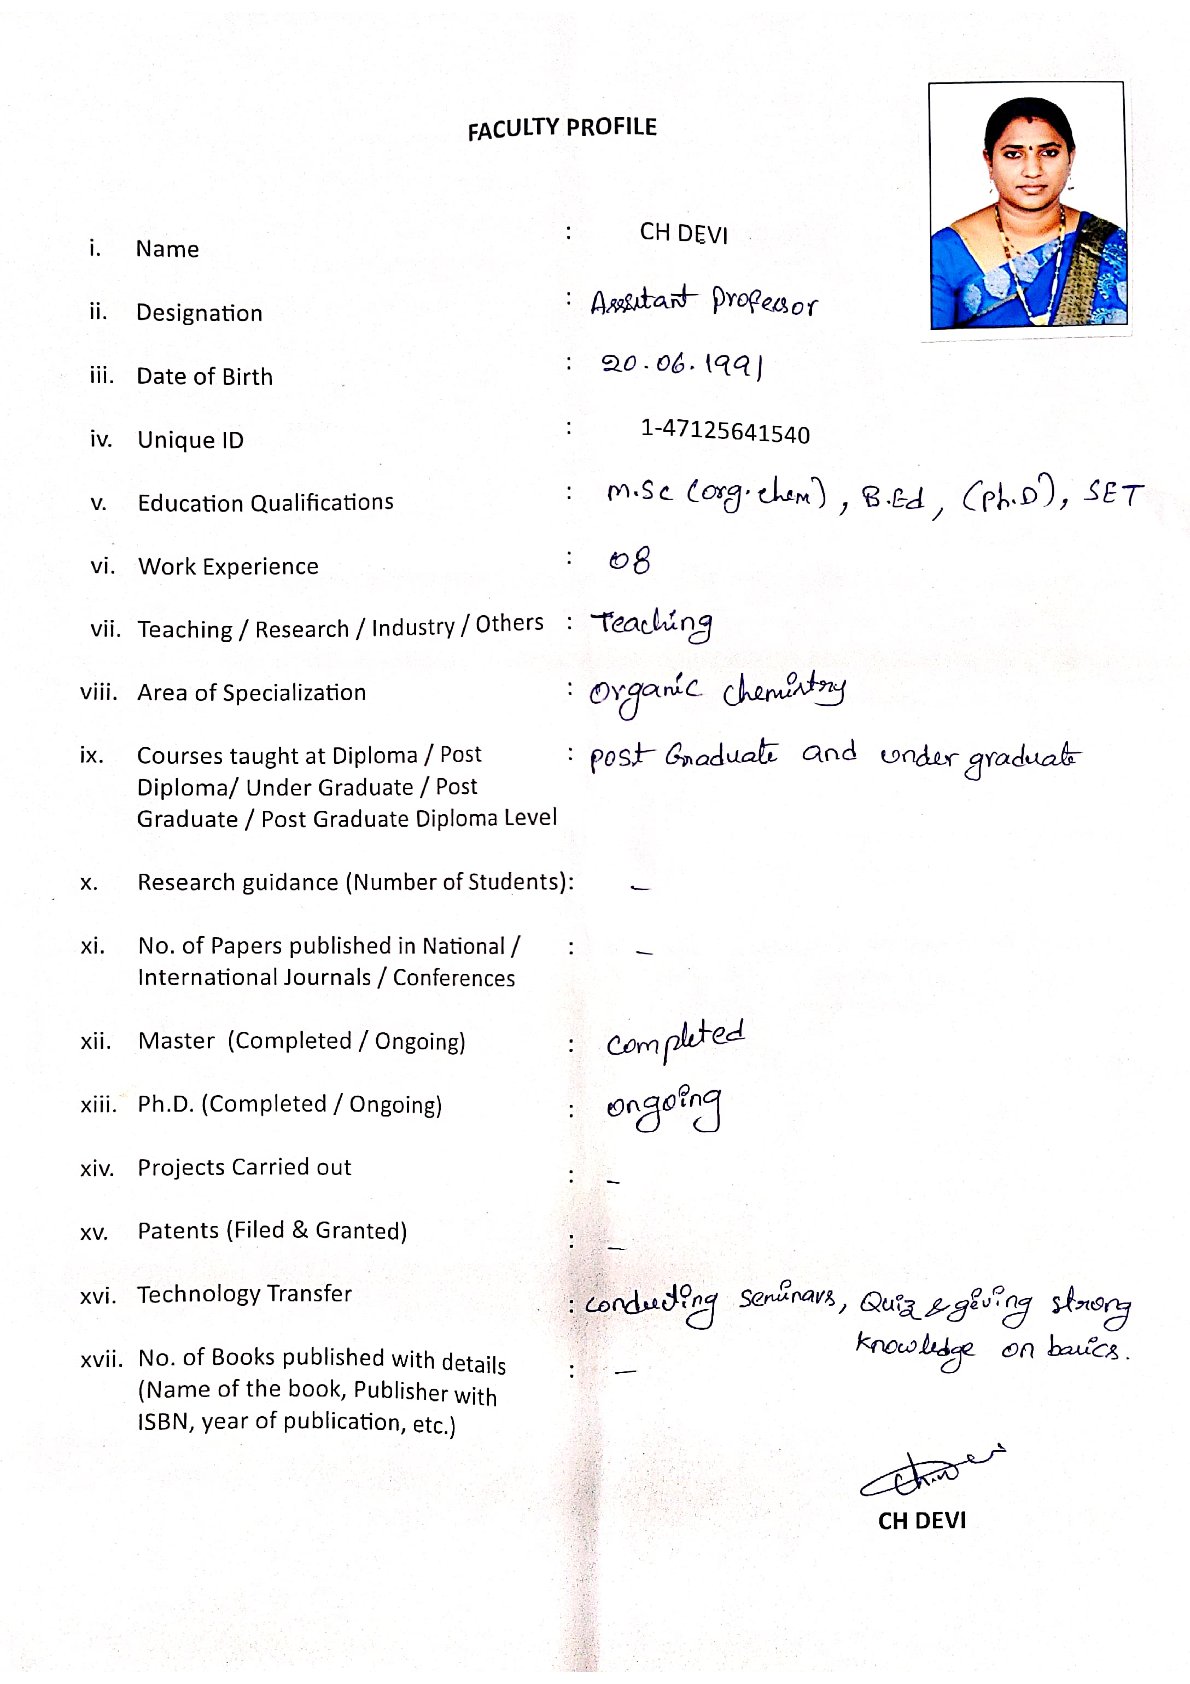 FACULTY PROFILE
i. Name : CH DEVI
ii. Designation : Assitant Professor
iii. Date of Birth : 20.06.1991
iv. Unique ID : 1-47125641540
v. Education Qualifications : M.Sc (org.chem), B.Ed, (Ph.D), SET
vi. Work Experience : 08
vii. Teaching / Research / Industry / Others : Teaching
viii. Area of Specialization : Organic chemistry
ix. Courses taught at Diploma / Post : post Graduate and under graduate
Diploma/ Under Graduate / Post
Graduate / Post Graduate Diploma Level
x. Research guidance (Number of Students): –
xi. No. of Papers published in National / : –
International Journals / Conferences
xii. Master (Completed / Ongoing) : completed
xiii. Ph.D. (Completed / Ongoing) : ongoing
xiv. Projects Carried out : –
xv. Patents (Filed & Granted) : –
xvi. Technology Transfer : conducting seminars, Quiz & geving strong
knowledge on basics.
xvii. No. of Books published with details : –
(Name of the book, Publisher with
ISBN, year of publication, etc.)
CH DEVI